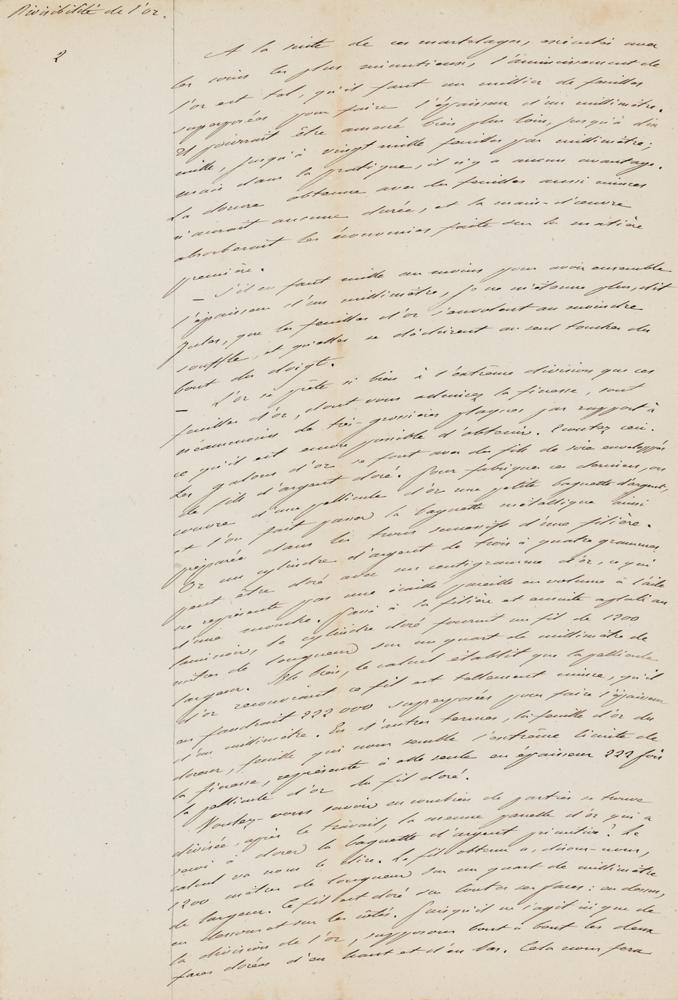 Divisibilité de l'or.
2
A la suite de ces martelages, exécutés avec
les soins les plus minutieux, l'amincissement de
l'or est tel, qu'il faut un millier de feuilles
superposées pour faire l'épaisseur d'un millimètre.
Il pourrait être amené bien plus loin, jusqu'à dix
mille, jusqu'à vingt mille feuilles par millimètre;
mais dans la pratique, il n'y a aucun avantage.
La dorure obtenue avec des feuilles aussi minces
n'aurait aucune durée, et la main-d'œuvre
absorberait les économies faites sur la matière
première.
— S'il en faut mille au moins pour avoir ensemble
l'épaisseur d'un millimètre, je ne m'étonne plus, dit
Jules, que les feuilles d'or s'envolent au moindre
souffle, et qu'elles se déchirent au seul toucher du
bout du doigt.
— L'or se prête si bien à l'extrême division que ces
feuilles d'or, dont vous admirez la finesse, sont
néanmoins de très-grossières plaques par rapport à
ce qu'il est encore possible d'obtenir. Ecoutez ceci.
Les galons d'or se font avec des fils de soie enveloppés
de fils d'argent doré. Pour fabriquer ce dernier, on
couvre d'une pellicule d'or une petite baguette d'argent,
et l'on fait passer la baguette métallique ainsi
préparée dans les trous successifs d'une filière.
Or un cylindre d'argent de trois à quatre grammes
peut être doré avec un centigramme d'or, ce qui
ne représente pas une écaille pareille en volume à l'aile
d'une mouche. Passé à la filière et ensuite aplati au
laminoir, le cylindre doré fournit un fil de 1200
mètres de longueur sur un quart de millimètre de
largeur. Eh bien, le calcul établit que la pellicule
d'or recouvrant ce fil est tellement mince, qu'il
en faudrait 222 000 superposées pour faire l'épaisseur
d'un millimètre. En d'autres termes, la feuille d'or du
doreur, feuille qui nous semble l'extrême limite de
la finesse, représente à elle seule en épaisseur 222 fois
la pellicule d'or du fil doré.
Voulez-vous savoir en combien de parties se trouve
divisée, après le travail, la menue parcelle d'or qui a
servi à dorer la baguette d'argent primitive? Le
calcul va nous le dire. Le fil obtenu a, disons-nous,
1200 mètres de longueur sur un quart de millimètre
de largeur. Ce fil est doré sur toutes ses faces: en dessus,
en dessous et sur les côtés. Puisqu'il ne s'agit ici que de
la division de l'or, supposons bout à bout les deux
faces dorées d'en haut et d'en bas. Cela nous fera